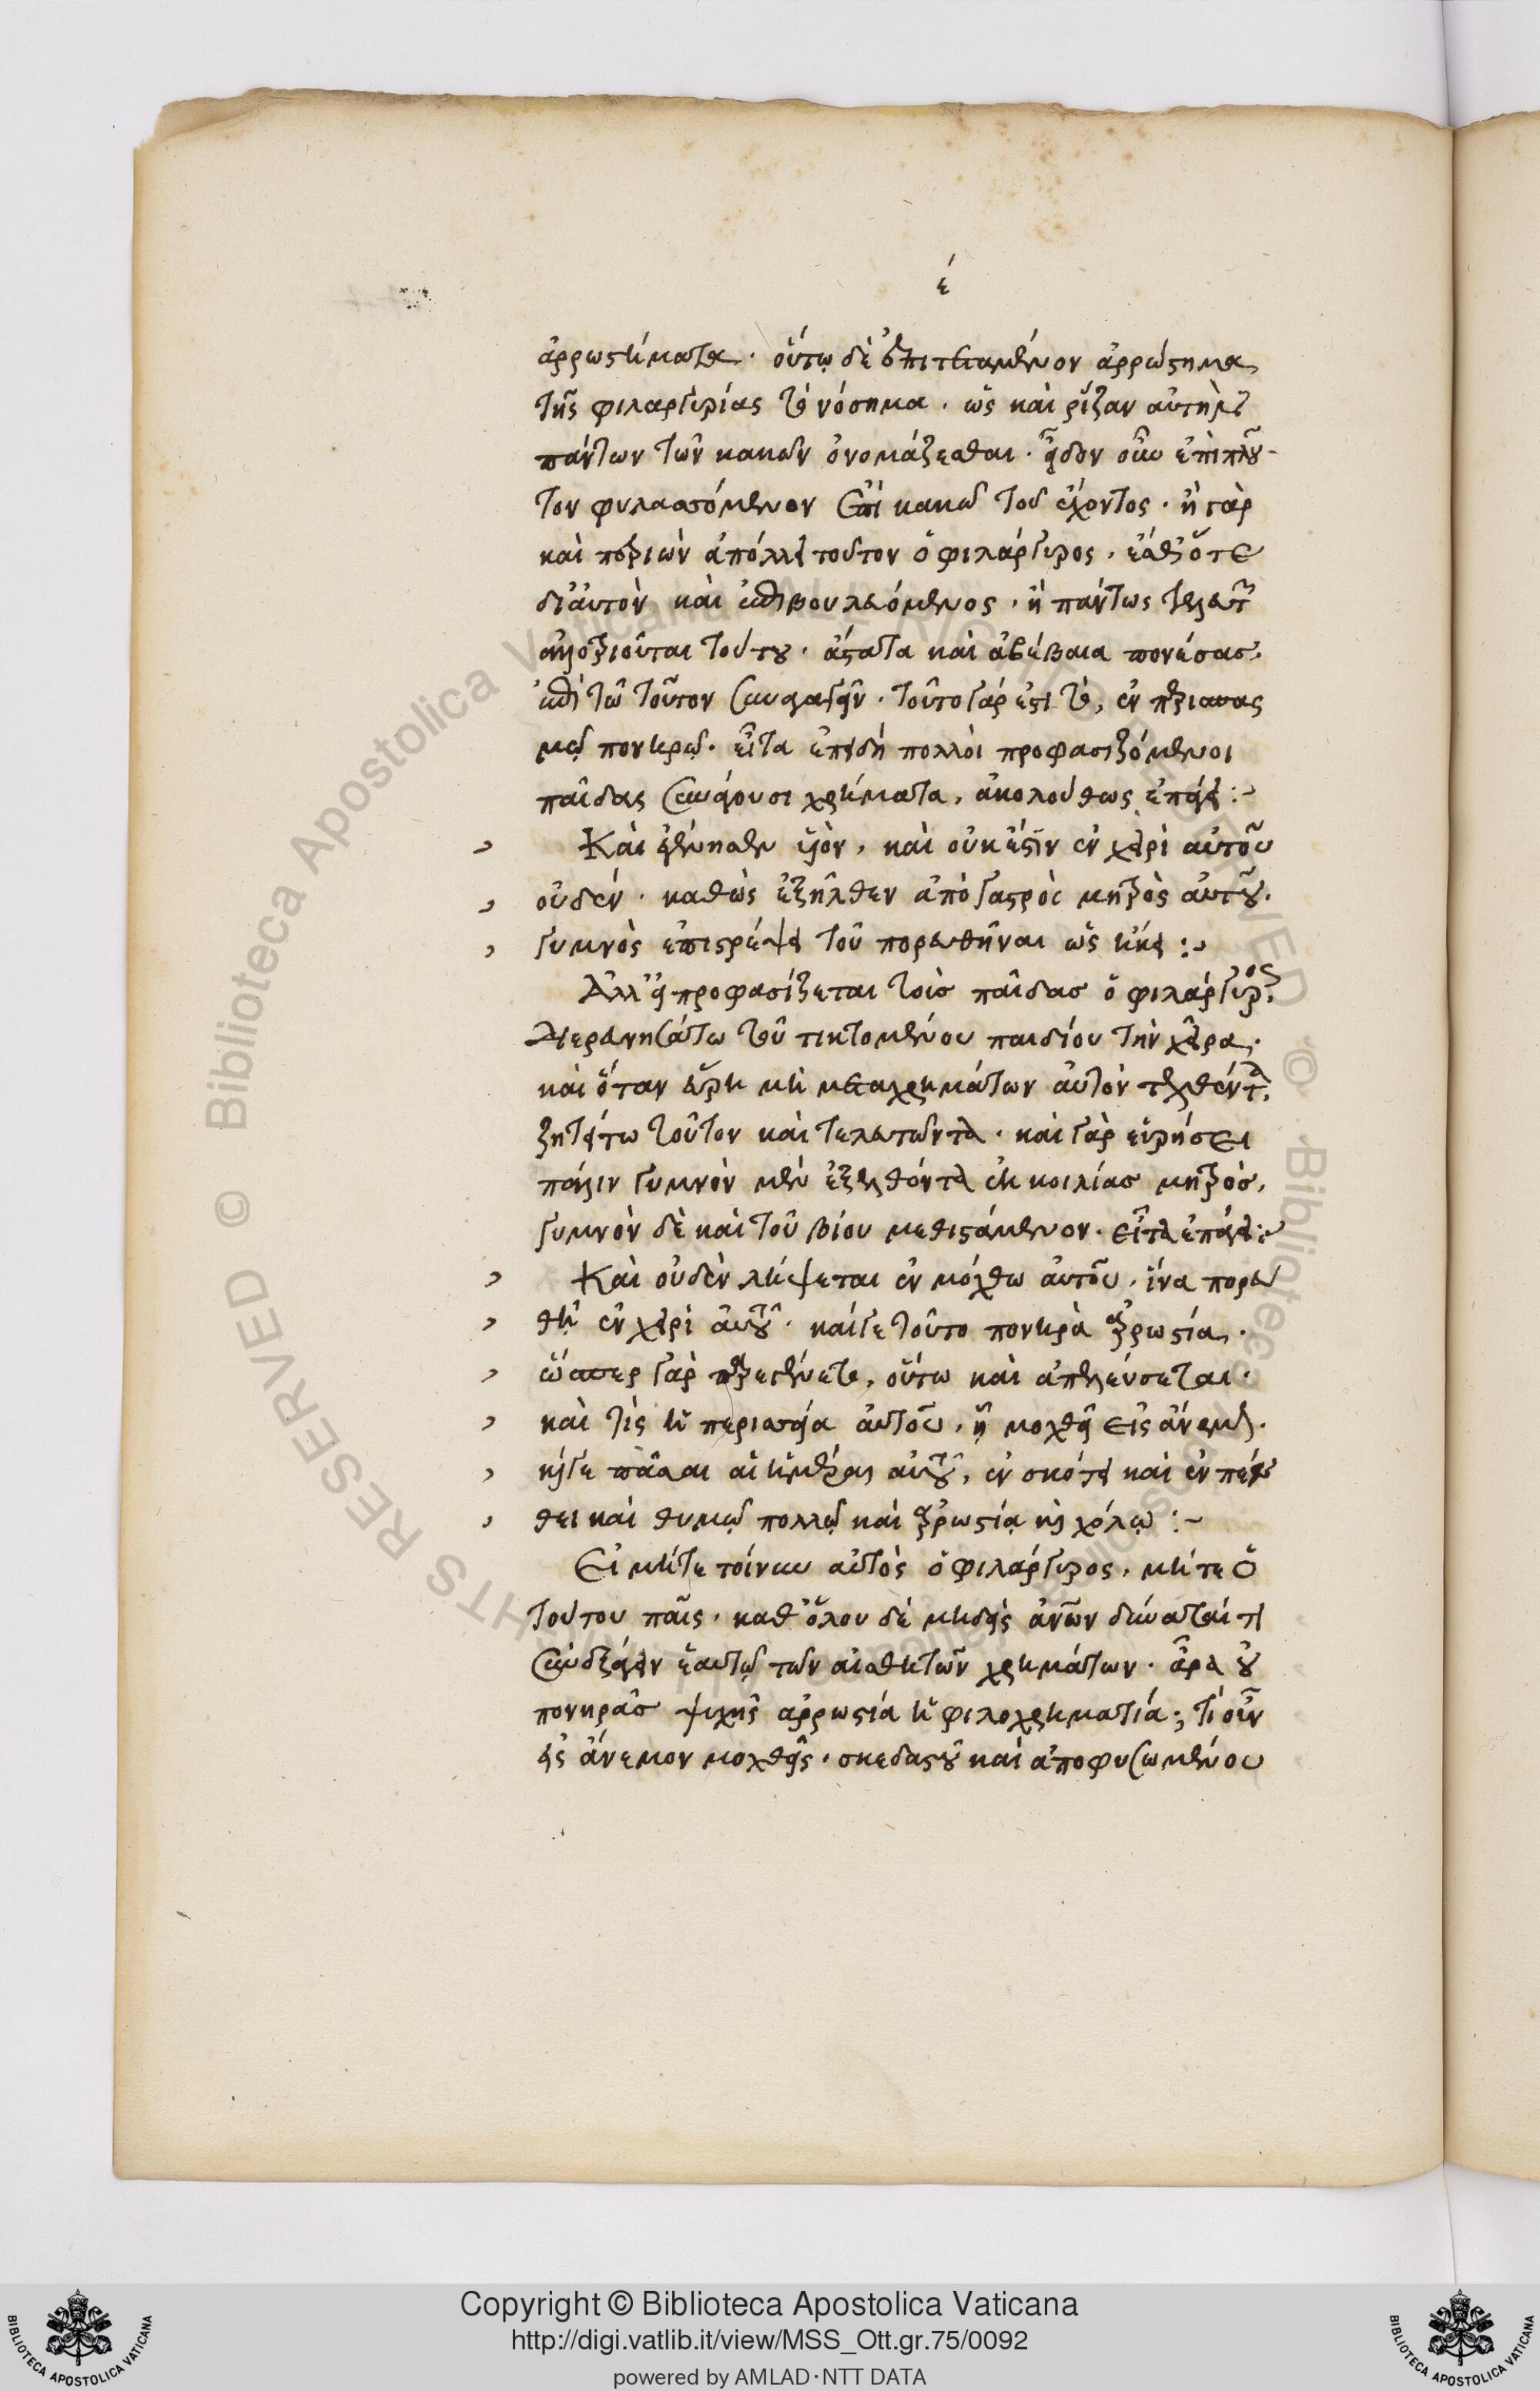 έ
ἀρρωστήματα. οὕτω δὲ ἐπιτεταμένον ἀρρώστημα
τῆς φιλαργυρίας τὸ νόσημα. ὡς καὶ ῥίζαν αὐτὴν
πάντων τῶν κακῶν ὀνομάζεσθαι. εἶδον οὖν ἐπὶ πλοῦ-
τον φυλασσόμενον ἐπὶ κακῶ τοῦ ἔχοντος. ἢ γὰρ
καὶ περιὼν ἀπόλλει τοῦτον ὁ φιλάργυρος, ἔσθ' ὅτε
δι' αὐτὸν καὶ ἐπιβουλευόμενος. ἢ πάντως
τούτου. ἄστατα καὶ ἀβέβαια πονέσας
ἐπὶ τῶ τοῦτον συναγαγεῖν. τοῦτο γάρ ἐστι τὸ, ἐν περισπασ
μῷ πονηρῷ. εἶτα ἐπειδὴ πολλοὶ προφασιζόμενοι
παῖδας συνάγουσι χρήματα, ἀκολούθως ἐπάγει :-
Καὶ ἐγέννησεν υἱὸν, καὶ οὐκ ἔστιν ἐν χειρὶ αὐτοῦ
οὐδέν. καθὼς ἐξῆλθεν ἀπὸ γαστρὸς μητρὸς αὐτοῦ.
γυμνὸς ἐπιστρέψει τοῦ πορευθῆναι ὡς ἥκει :-
Ἀλλ' εἰ προφασίζεται τοὺς παῖδας ὁ φιλάργυρος,
διερευνησάτω τοῦ τικτομένου παιδίου τὴν χεῖρα,
καὶ ὅταν εὕρη μὴ μετὰ χρημάτων αὐτὸν τεχθέντα,
ζητείτω τοῦτον καὶ τελευτῶντα. καὶ γὰρ εὑρήσει
πάλιν γυμνὸν μὲν ἐξελθόντα ἐκ κοιλίας μητρὸς,
γυμνὸν δὲ καὶ τοῦ βίου μεθιστάμενον. εἶτα ἐπάγει :-
Καὶ οὐδὲν λήψεται ἐν μόχθω αὐτοῦ, ἵνα πορευ
θῆ ἐν χειρὶ αὐτοῦ. καίγε τοῦτο πονηρὰ ἀρρωστία.
ὥσπερ γὰρ παρεγένετο, οὕτω καὶ ἀπελεύσεται.
καὶ τίς ἡ περισσεία αὐτοῦ, ἧ μοχθεῖ εἰς ἄνεμον.
καίγε πᾶσαι αἱ ἡμέραι αὐτοῦ, ἐν σκότει καὶ ἐν πέν
θει καὶ θυμῷ πολλῷ καὶ ἀρρωστίᾳ καὶ χόλῳ :-
Εἰ μήτε τοίνυν αὐτὸς ὁ φιλάργυρος, μήτε ὁ
τούτου παῖς, καθ' ὅλου δὲ μηδεὶς ἀνῶν δύναταί τι
συνεξάγειν ἑαυτῷ τῶν αἰσθητῶν χρημάτων. ἆρα οὐ
πονηρᾶς ψυχῆς ἀρρωστία ἡ φιλοχρηματία; τί οὖν
εἰς ἄνεμον μοχθεῖς. σκεδαστοῦ καὶ ἀποφυσωμένου
Copyright © Biblioteca Apostolica Vaticana
http://digi.vatlib.it/view/MSS_Ott.gr.75/0092
powered by AMLAD·NTT DATA